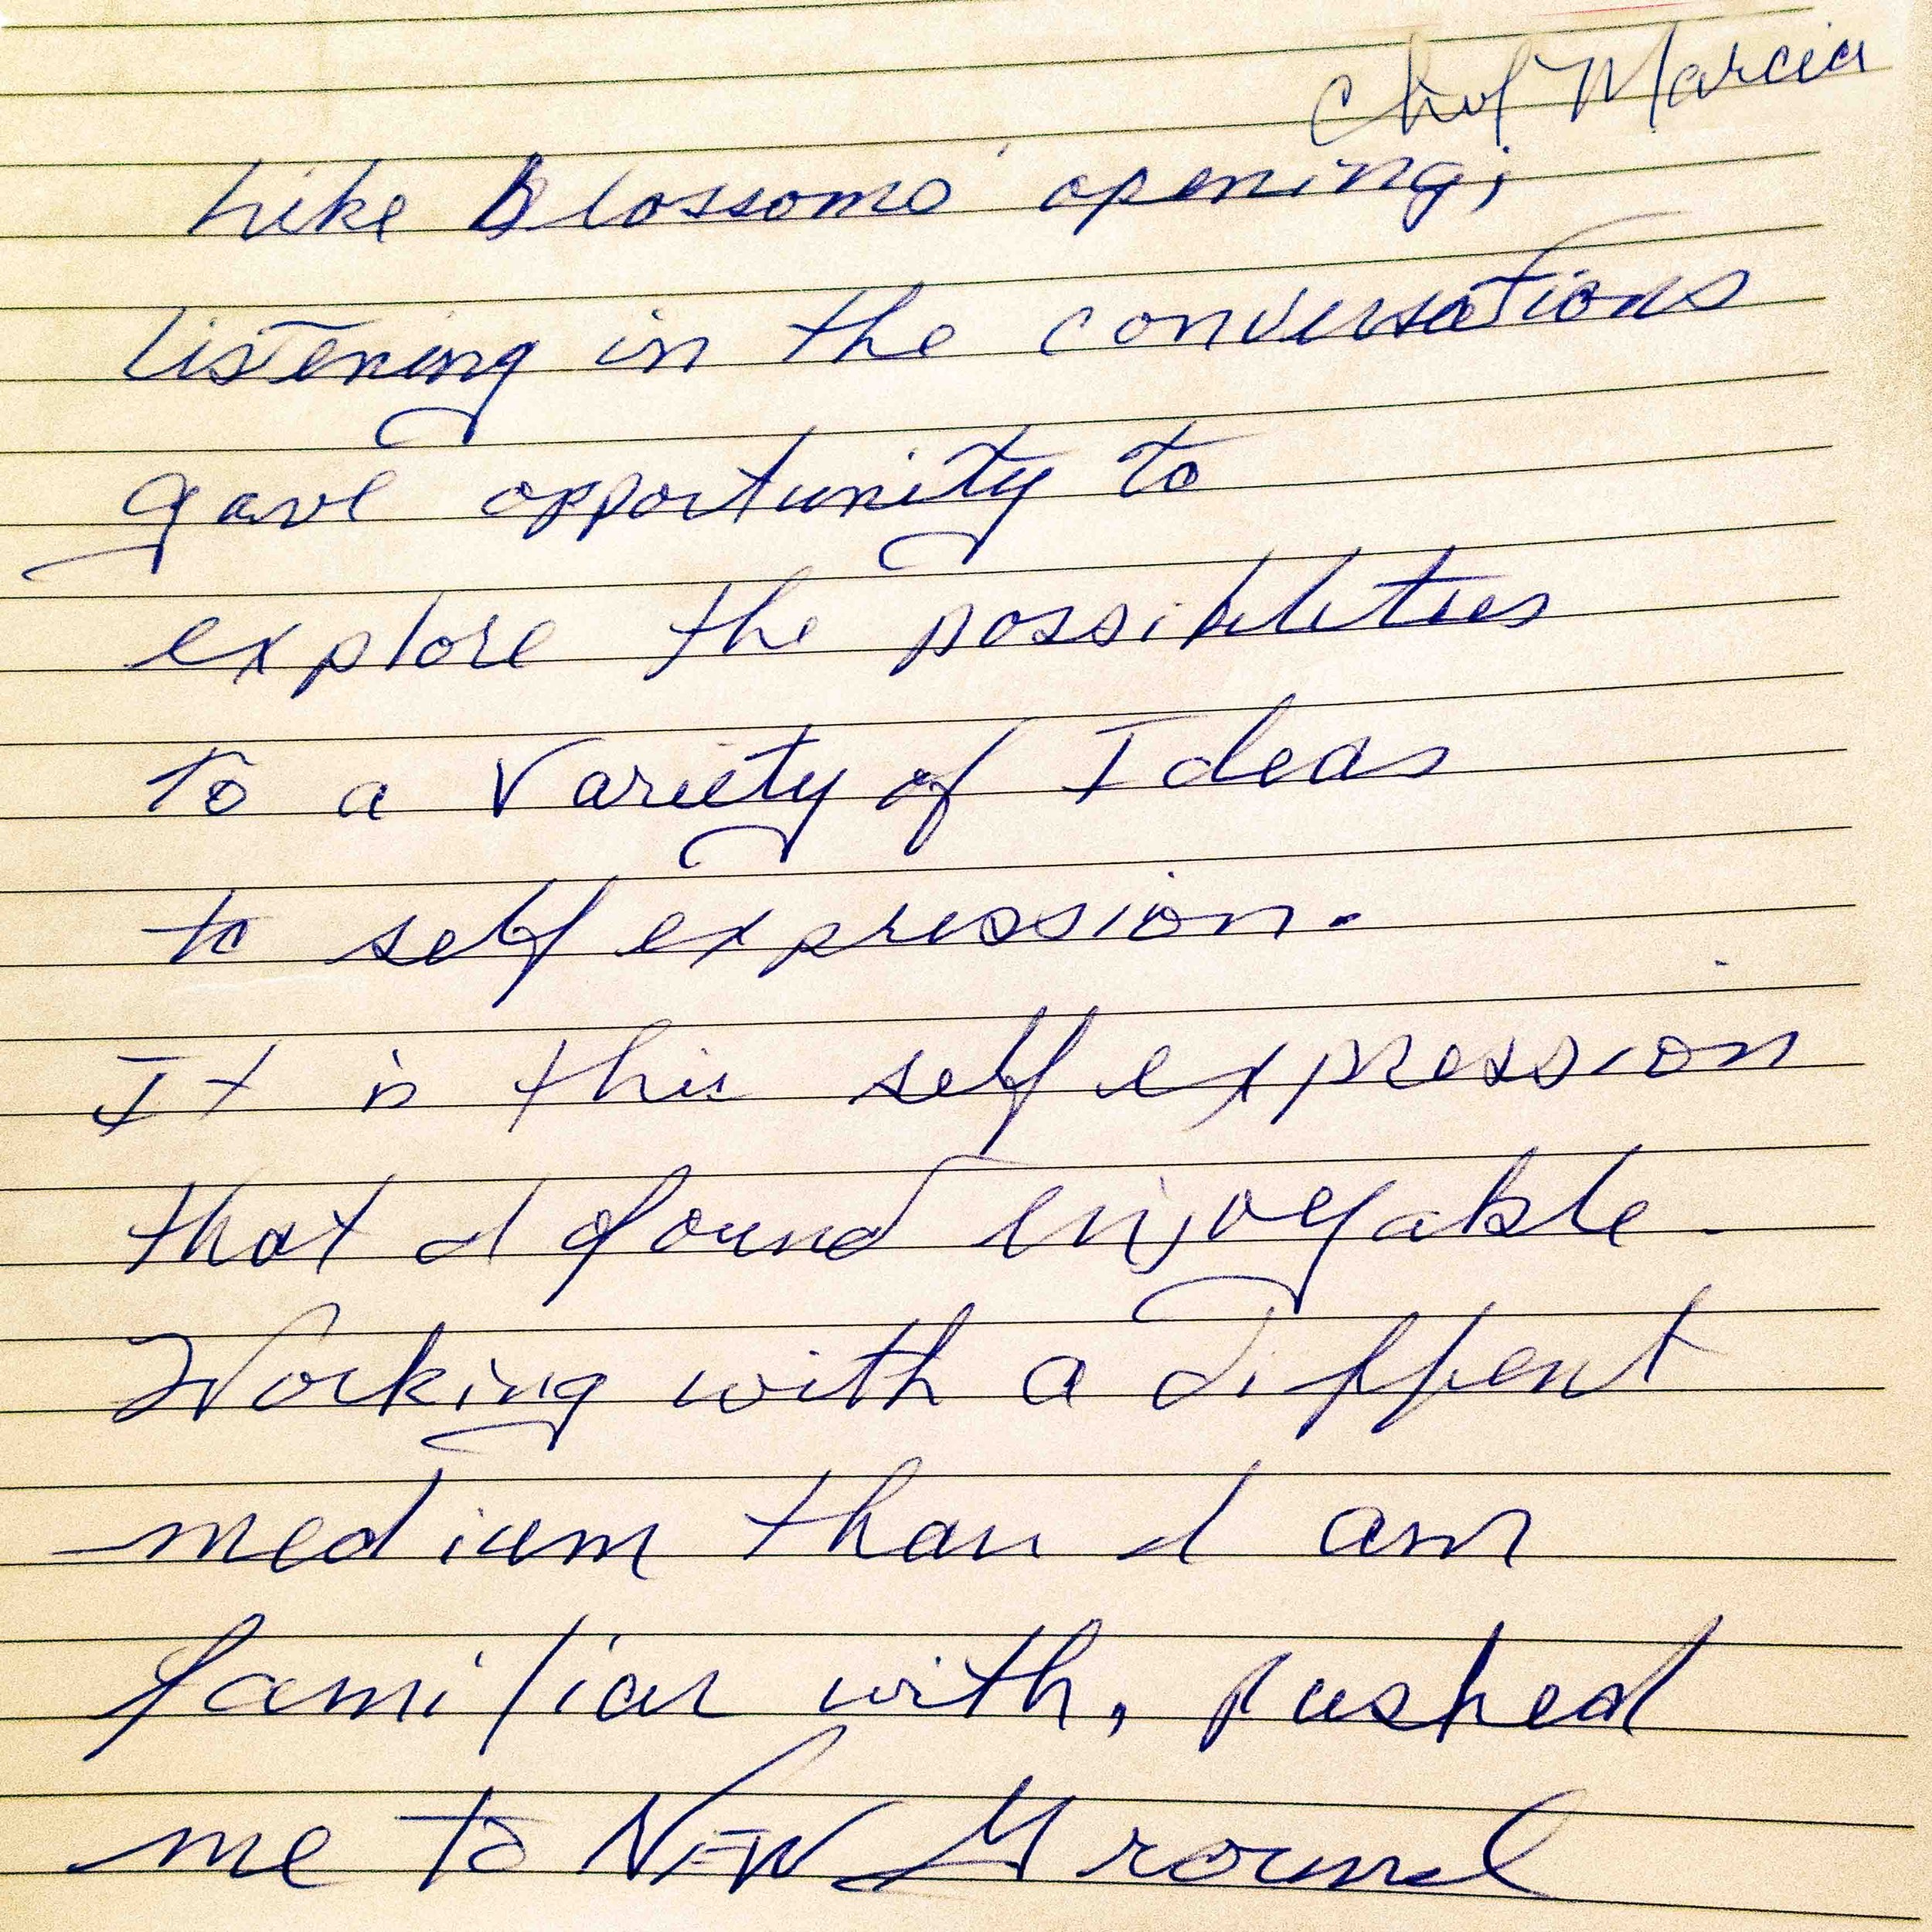 Chef Marcia
Like Blossoms opening;
listening in the conversations
gave opportunity to
explore the possibilities
to a Variety of Ideas
to self expression.
It is this self expression
that I found enjoyable.
Working with a diffrent
medium than I am
familiar with, pushed
me to NEW Ground